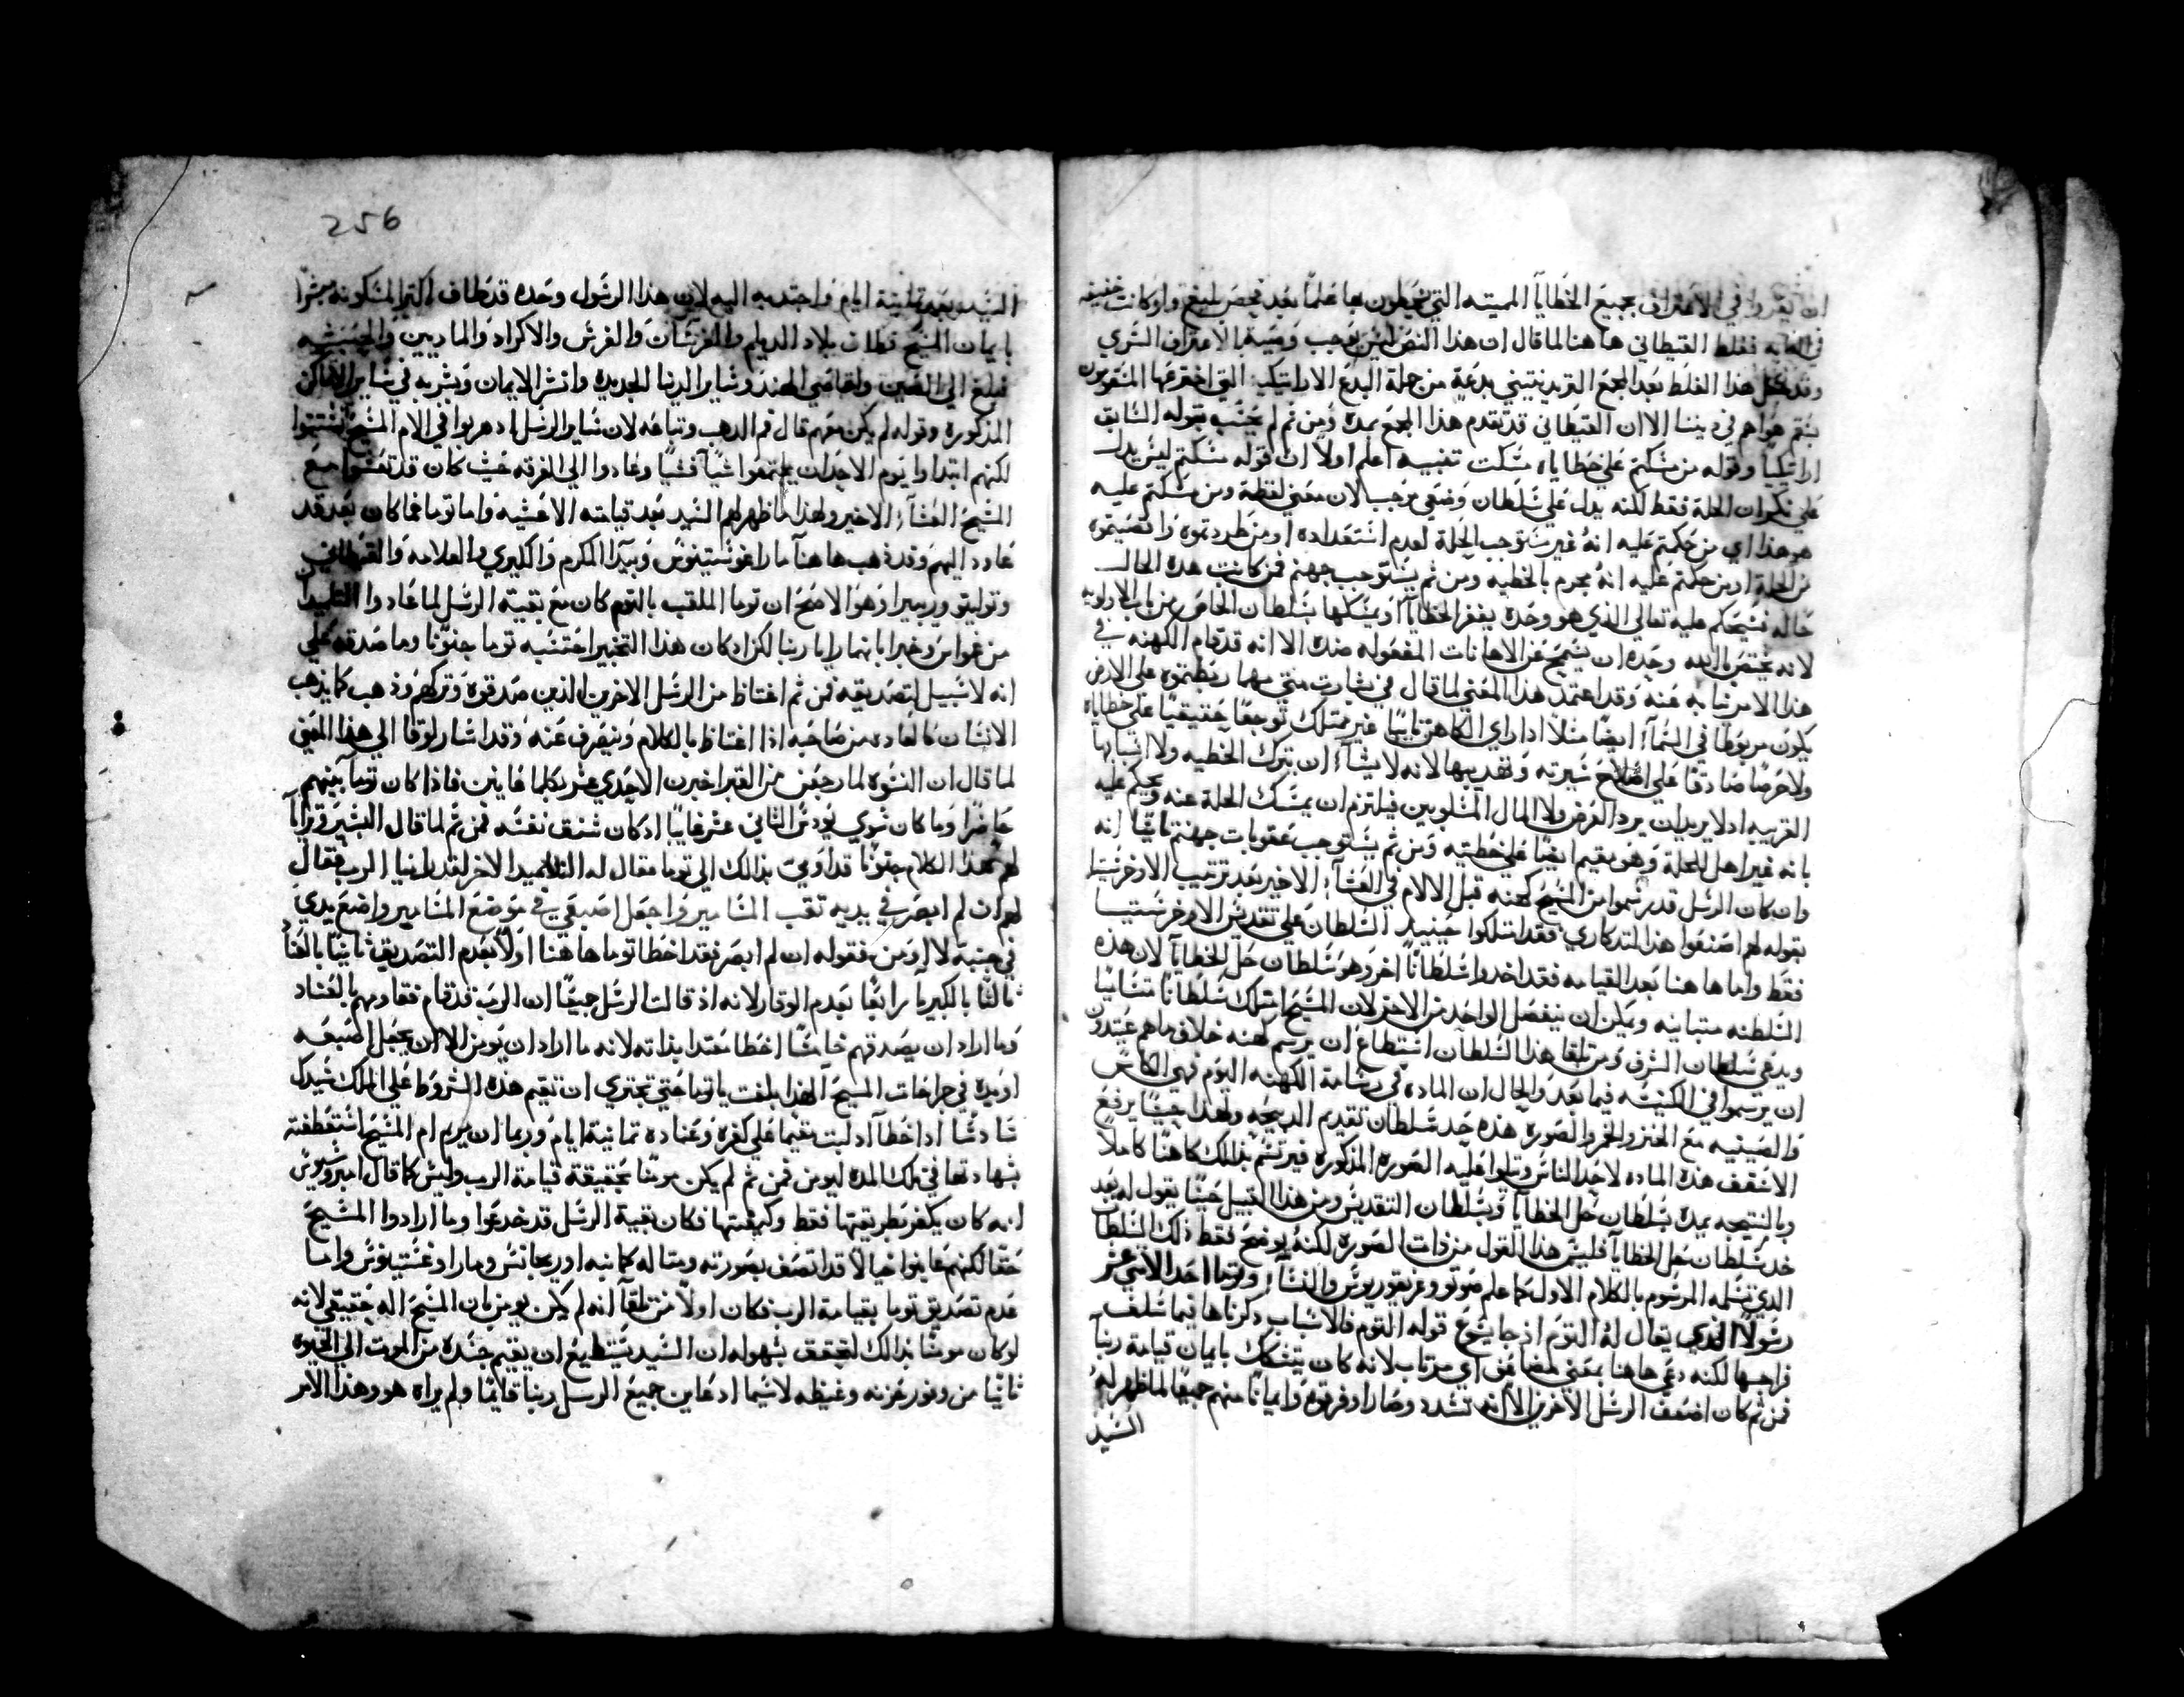 ان يقروا في الاعتراف بجميع الخطايا المميته التي يحيطون بها علمًا بعد فحص بليغ ولو كانت خفيفه
في الغايه فغلط القيطاني ها هنا لما قال ان هذا النص ليس يوجب وصية الاعتراف السري
وقد حل هذا الغلط بعد المجمع التريدنتيني بدعة من جملة البدع الاراتيكيه التي اخترعها المنقرون
بتم هواهم في ديننا الا ان القيطاني قد تقدم هذا المجمع بمده ومن ثم لم يحتسب بقوله السابق
اراتيكيًا وقوله من مسكتم علي خطاياه مسكت تفسيره اعلم اولًا ان قوله مسكتم ليس يدل
علي نكران الحلة فقط لكنه يدل علي سلطان وضعي موجب لان معني لفظة ومن مسكتم عليه
هو هذا اي من حكمتم عليه انه غير مستوجب الحلة لعدم استعداده او من طردتموه واقصيتموه
من الحلة او من حكمتم عليه انه مجرم بالخطيه ومن ثم يستوجب جهنم فمن كانت هذه الحال
حاله فسيحكم عليه تعالي الذي هو وحده يغفر الخطايا او يمسكها بسلطان الخاص من باب الاولويه
لانه يختص بالله وحده ان يسمح عن الاهانات المفعوله ضده الا انه قد قام الكهنه في
هذا الامر نيابه عنه وقد اعتمد هذا المعني لما قال في بشارت متي مهما ربطتموه علي الارض
يكون مربوطًا في السماء ايضًا مثلًا اذا راي الكاهن تايبًا غير ممتلك توجعًا حقيقيًا علي خطاياه
ولا حرصًا صادقًا علي اصلاح سيرته وتهذيبها لانه لا يشاء ان يترك الخطيه ولا اسبابها
القريبه او لا يريد ان يرد العرض ولا المال المسلوبين فيلتزم ان يمسك الحلة عنه ويحكم عليه
بانه غير اهل للحلة وهو يقيم ايضًا علي خطيته ومن ثم يستوجب عقوبات جهنم ثانيًا انه
وان كان الرسل قد رسموا من المسيح كهنه قبل الالام في العشاء الاخير بعد ترتيب الاوخرستيا
بقوله لهم اصنعوا هذا لتذكاري فقد امتلكوا حينيد السلطان علي تقديس الاوخرستيا
فقط واما ها هنا بعد القيامه فقد اخدوا سلطانًا اخر وهو سلطان حل الخطايا لان هذه
السلطنه متباينه ويمكن ان ينفصل الواحد من الاخر لان المسيح امتلك سلطانًا متساميًا
ويدعي سلطان الشرف ومن تلقا هذا السلطان استطاع ان يرسم كهنه خلاف ما هم عتيدون
ان يرسموا في الكنيسه فيما بعد والحال ان الماده في رسامة الكهنه اليوم فهي الكاس
والصينيه مع الخبز والخمر والصوره هذه خد سلطان تقديم الدبيحه ولهذا حينما يرفع
الاسقف هذه الماده لاحد الناس ويتلوا عليه الصوره المذكوره فيرتسم بذلك كاهنًا كاملًا
وبالنتيجه يمده بسلطان حل الخطايا وبسلطان التقديس ومن هذا القبيل حينما يقول له بعد
خد سلطان حل الخطايا فليس هذا القول من ذات الصوره لكنه يوضح فقط ذلك السلطان
الذي تسلمه المرسوم بالكلام الاول كما علم صوتو وغريغوريوس والنساء وتوما احد الاثني عشر
رسولًا الذي يقال له التوم اذ جا يسوع قوله التوم فالاسباب دكرناها فيما سلف
فراجعها لكنه دعي ها هنا بمعني مضاعف اي مرتاب لانه كان يتشكك بايمان قيامة ربنا
فمن ثم كان اضعف الرسل الاخرين الا انه تشدد وصار اوفر قوة وايمانًا منهم جميعًا لما ظهر له
السيد
256
السيد بعد ثمانية ايام واجتدبه اليه لان هذا الرسول وحده قد طاف اكثر المسكونه مبشرًا
بايمان المسيح فطاف بلاد الديلم والفرس والاكراد والماديين والحبشه
فبلغ الي الصين واقاصي الهند وساير الدنيا الجديده وانشر الايمان وبشر به في ساير الاماكن
المذكوره وقوله لم يكن معهم قال فم الذهب وتباعه لان ساير الرسل اذ هربوا في الام المسيح تشتتوا
لكنهم ابتداوا يوم الاحد ان يجتمعوا شيًا فشيًا وعادوا الي الغرفه حيث كان قد تعشوا مع
المسيح العشاء الاخير ولهذا ما ظهر لهم السيد بعد قيامته الا عشيه واما توما فما كان بعد قد
عاود اليهم وقد ذهب ها هنا مار اغوستينوس وبيدا المكرم والكليري والعلامه والقيطاني
وتوليتو وريبيرا وهو الاصح ان توما الملقب بالتوم كان مع بقية الرسل لما عادوا التلميذان
من عمواس وخبرا بانهما رايا ربنا لكن اذ كان هذا التخبير احتسبه توما جنونًا وما صدقه علي
انه لا سبيل لتصديقه فمن ثم اغتاظ من الرسل الاخرين الذين صدقوه وتركهم وذهب كما يذهب
الانسان كالعاده من صاحبه اذا اغتاظ بالكلام وينصرف عنه وقد اشار لوقا الي هذا المعني
لما قال ان النسوه لما رجعن من القبر اخبرن الاحدي عشر بكلما عاينن فاذا كان توما بينهم
حاضرًا وما كان سوي يودس الثاني عشر غايبًا اذ كان شنق نفسه فمن ثم لما قال البشير وترايا
لهم هذا الكلام جنونًا قد اومي بذالك الي توما فقال له التلاميد الاخر لقد راينا الرب فقال
لهم ان لم ابصر في يديه ثقب المسامير واجعل اصبعي في موضع المسامير واضع يدي
في جنبه لا اومن فقوله ان لم ابصر فقد اخطا توما ها هنا اولًا بعدم التصديق ثانيًا بالعناد
ثالثًا بالكبريا رابعًا بعدم الوقار لانه اذ قالت الرسل جميعًا ان الرب قد قام فقاومهم بالعناد
وما اراد ان يصدقهم خامسًا اخطا معتدا بذاته لانه ما اراد ان يومن الا ان يجعل اصبعه
او يده في جراحات المسيح الهذا بلغت يا توما حتي تجتري ان تقيم هذه الشروط علي الملك سيدك
سادسًا اذ اخطا اذ لبت مقيمًا علي كفره وعناده تمانية ايام وربما ان مريم ام المسيح استعطفته
بشهادتها في تلك المده ليومن فمن ثم لم يكن مومنًا بحقيقة قيامة الرب وليس كما قال امبروسيوس
انه كان يكفر بطريقتها فقط وكيفيتها فكان بقية الرسل قد خدعوا وما ارادوا المسيح
حقًا لكنهم عاينوا خيالًا قد اتصف بصورته ومثاله كما نبه اوريجانس ومار اوغستينوس واما
عدم تصديق توما بقيامة الرب فكان اولًا من تلقا انه لم يكن يومن بان المسيح اله حقيقي لانه
لو كان مومنًا بذالك لتحقق بسهوله ان السيد يستطيع ان يقيم جسده من الموت الي الحيوه
ثانيًا من وفور حزنه وغيظه لاسيما اذ عاين جميع الرسل ربنا قايمًا ولم يراه هو وهذا الامر